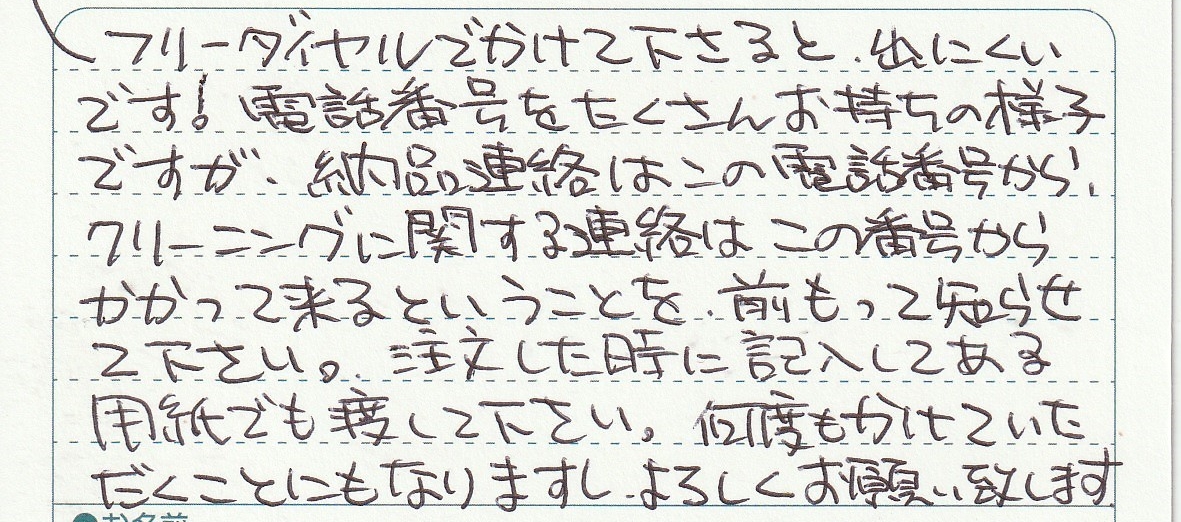 フリーダイヤルでかけて下さると、出にくい
です! 電話番号をたくさんお持ちの様子
ですが、納品連絡はこの電話番号から、
クリーニングに関する連絡はこの番号から
かかって来るということを、前もって知らせ
て下さい。注文した時に記入してある
用紙でも渡して下さい。何度もかけていた
だくことにもなりますし、よろしくお願い致します
●お名前